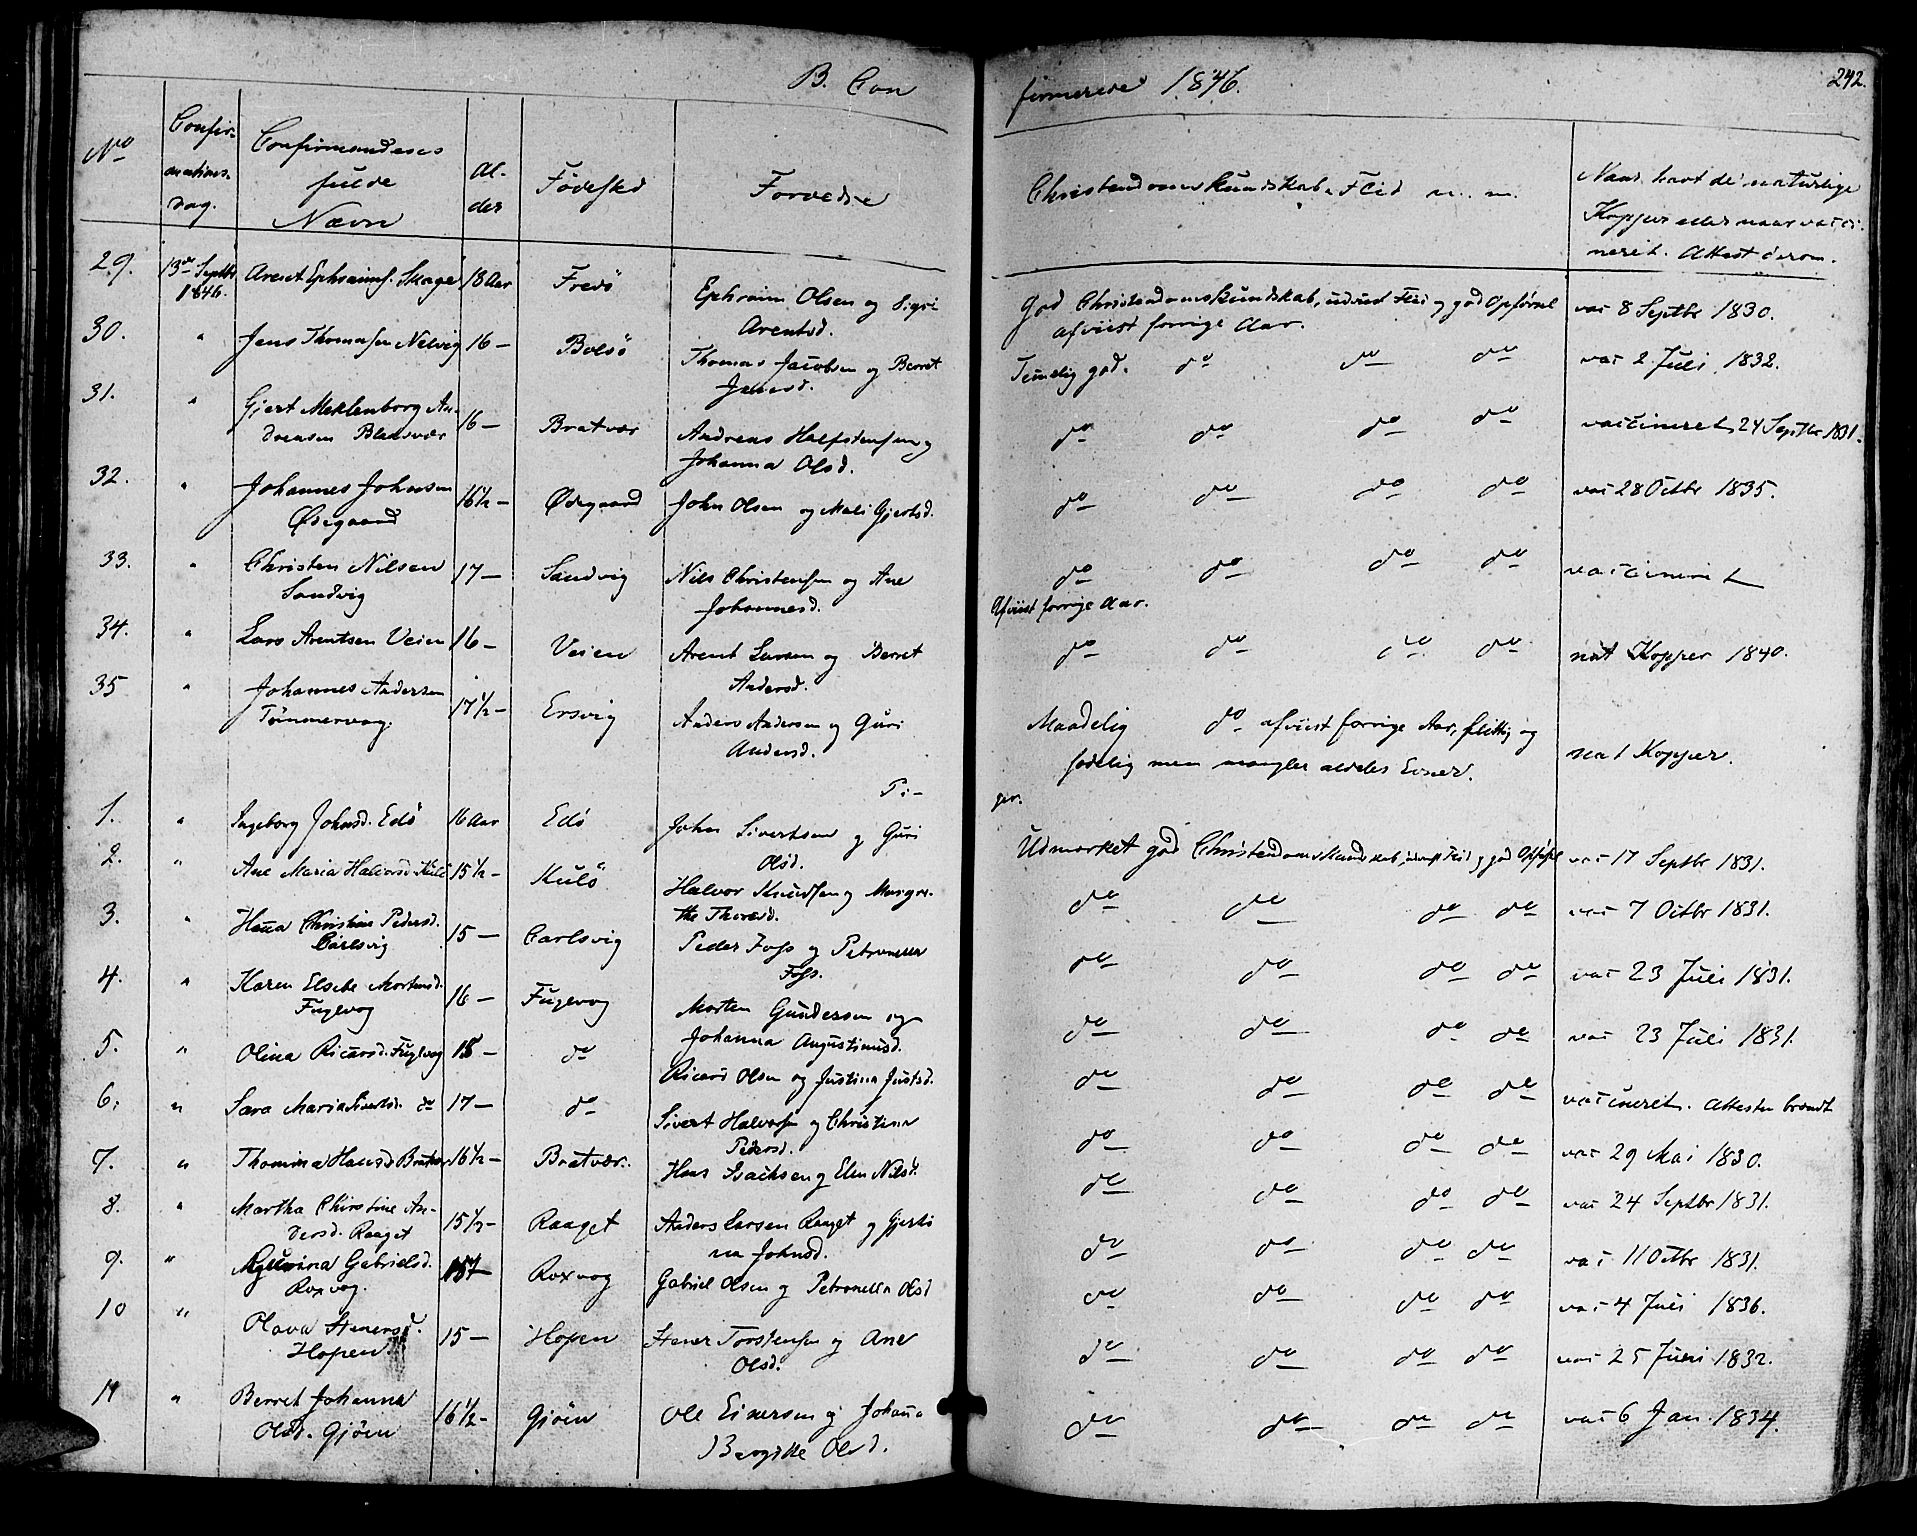 B. Con
firmerede 1846.
242.
No
Confir-
mations-
dag.
Confirmandenes
fulde
Navn
Al-
der
Fødested
Forældre
Christendomskundskab, Flid m. m.
Naar havt de naturlige
Kopper eller naar vacci-
neret. Attest derom.
29. 13de Septbr 1846. Arent Ephraims. Skage 18 Aar Fredö Ephraim Olsen og Sigri
Arentsd.
God Christendomskundskab, udviist Flid og god Opførsel vac 8 Septbr 1830.
afviist forrige Aar.
30. " Jens Thomassen Nelvig 16 — Bolsö Thomas Jacobsen og Berret
Jensd.
Temelig god. do do do vac 2 Juli 1832.
31. " Gjert Meklenborg An-
dreasen Bladvær 16 — Bratvær Andreas Halfstensen og
Johanna Olsd.
do do do do vaccineret 24 Septbr 1831.
32. " Johannes Johnsen
Ødegaard 16½ — Ødegaard John Olsen og Mali Gjertsd.
do do do do vac 28 Octbr 1835.
33. " Christen Nilsen
Sandvig 17 — Sandvig Nils Christensen og Ane
Johannesd.
do do do do vaccineret
Afviist forrige Aar.
34. " Lars Arentsen Veien 16 — Veien Arent Larsen og Berret
Andersd.
do do do do nat Kopper 1840.
35 " Johannes Andersen
Tömmervog. 17½ — Ersvig Anders Andersen og Guri
Andersd.
Maadelig do afviist forrige Aar, flittig og
sædelig men mangler aldeles Evner. nat Kopper.
Pi-
ger.
1. " Ingeborg Johnsd. Edö 16 Aar Edö John Sivertsen og Guri
Olsd.
Udmærket god Christendomskundskab, udviist Flid og god Opførsel vac 17 Septbr 1831.
2. " Ane Maria Halvorsd. Kulö 15½ — Kulö Halvor Knudsen og Margre-
the Thoresd.
do do do do vac 7 Octbr 1831.
3. " Hanna Christine Pedersd.
Carlsvig 15 — Carlsvig Peder Foss og Petronelle
Foss.
do do do do vac 23 Juli 1831.
4. " Karen Elsebe Mortensd.
Fuglevog 16 — Fuglevog Morten Gundersen og
Johanna Augustinusd.
do do do do vac 23 Juli 1831.
5. " Olina Ricarsd. Fuglvog 15 — do Ricard Olsen og Justina Justsd.
do do do do vaccineret. Attesten brændt
6. " Sara Maria Sivertsd. do 17 — do Sivert Halvorsen og Christine
Pedersd.
do do do do vac 29 Mai 1830.
7. " Thomina Hansd. Bratvær 16½ — Bratvær. Hans Isachsen og Elen Nilsd.
do do do do vac 24 Septbr 1831.
8. " Martha Christine An-
dersd. Raaget 15½ — Raaget Anders Larsen Raaget og Gjerti
na Johnsd.
do do do do vac 11 Octbr 1831.
9. " Gabrielsd.
Roxvog. Roxvog Gabriel Olsen og Petronella Olsd
do do do do vac 4 Juli 1836.
10 " Olava Stenersd.
Hopen 15 — Hopen Stener Torstensen og Ane
Olsd.
do do do do vac 25 Juni 1832.
11 " Berret Johanna
Olsd. Gjöen 16½ — Gjöen Ole Einersen og Johanna
Bergitte Olsd.
do do do do vac 6 Jan. 1834.